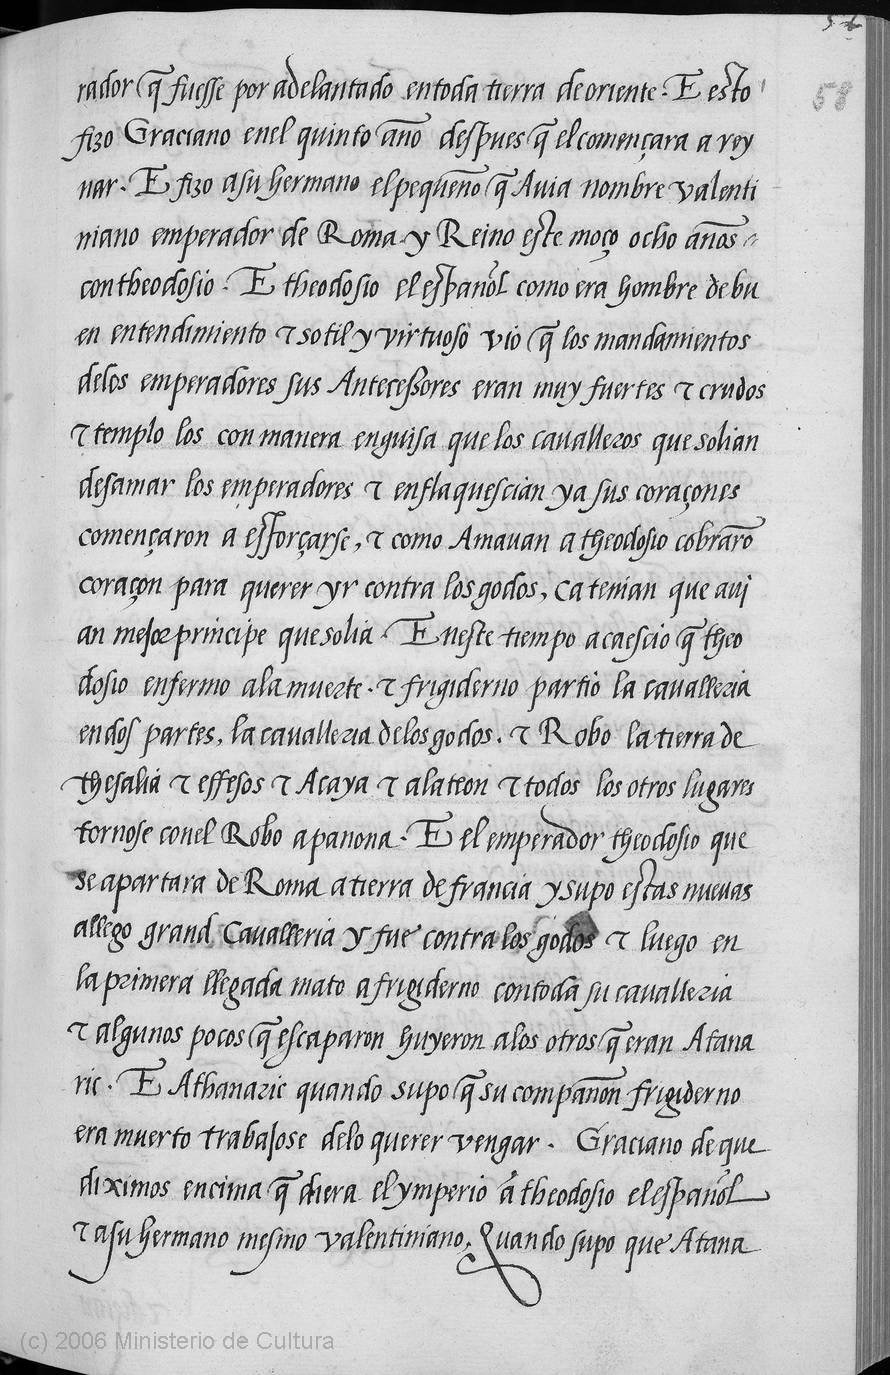 58
rador q̃ fuesse por adelantado en toda tierra de oriente. E esto
fizo Graciano en el quinto año despues q̃ el començara a rey
nar. E fizo a su hermano el pequeño q̃ Auia nombre valenti
niano emperador de Roma y Reino este moço ocho años
con theodosio. E theodosio el español como era hombre de bu
en entendimiento ⁊ sotil y virtuoso vio q̃ los mandamientos
delos emperadores sus Antecessores eran muy fuertes ⁊ crudos
⁊ templo los con manera enguisa que los caualleros que solian
desamar los emperadores ⁊ enflaquescian ya sus coraçones
començaron a esforçarse, ⁊ como Amauan a theodosio cobrarõ
coraçon para querer yr contra los godos, Ca tenian que aui
an mejor principe que solia. En este tiempo acaescio q̃ theo
dosio enfermo ala muerte. ⁊ frigiderno partio la caualleria
en dos partes, la caualleria de los godos. ⁊ Robo la tierra de
thesalia ⁊ effesos ⁊ Acaya ⁊ alateon ⁊ todos los otros lugares
tornose con el Robo a panona. E el emperador theodosio que
se apartara de Roma a tierra de francia y supo estas nueuas
allego grand Caualleria y fue contra los godos ⁊ luego en
la primera llegada mato a frigiderno con toda su caualleria
⁊ algunos pocos q̃ escaparon huyeron a los otros q̃ eran Atana
ric. E Athanaric quando supo q̃ su compañon frigiderno
era muerto trabajose delo querer vengar. Graciano de que
diximos encima q̃ diera el ymperio á theodosio el español
⁊ a su hermano mesmo valentiniano. Quando supo que Atana
(c) 2006 Ministerio de Cultura